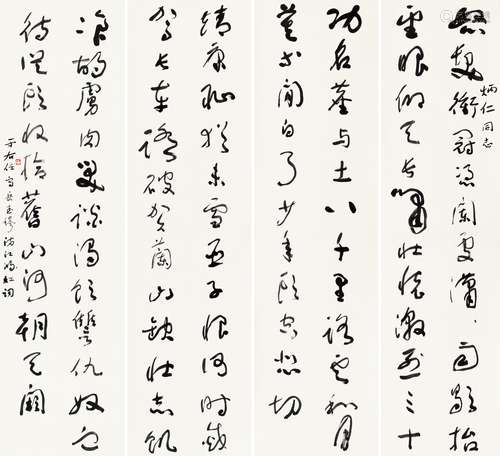 怒髮衝冠憑闌處瀟、雨歇抬
炳仁同志
望眼仰天長嘯壯懷激烈三十
功名塵与土八千里路雲和月
莫等閒白了少年頭空悲切
靖康恥猶未雪臣子恨何時滅
駕長車踏破賀蘭山缺壯志飢
飡胡虜肉笑談渴飲讐仇奴血
待從頭收拾舊山河朝天闕
于右任書岳武穆滿江紅詞